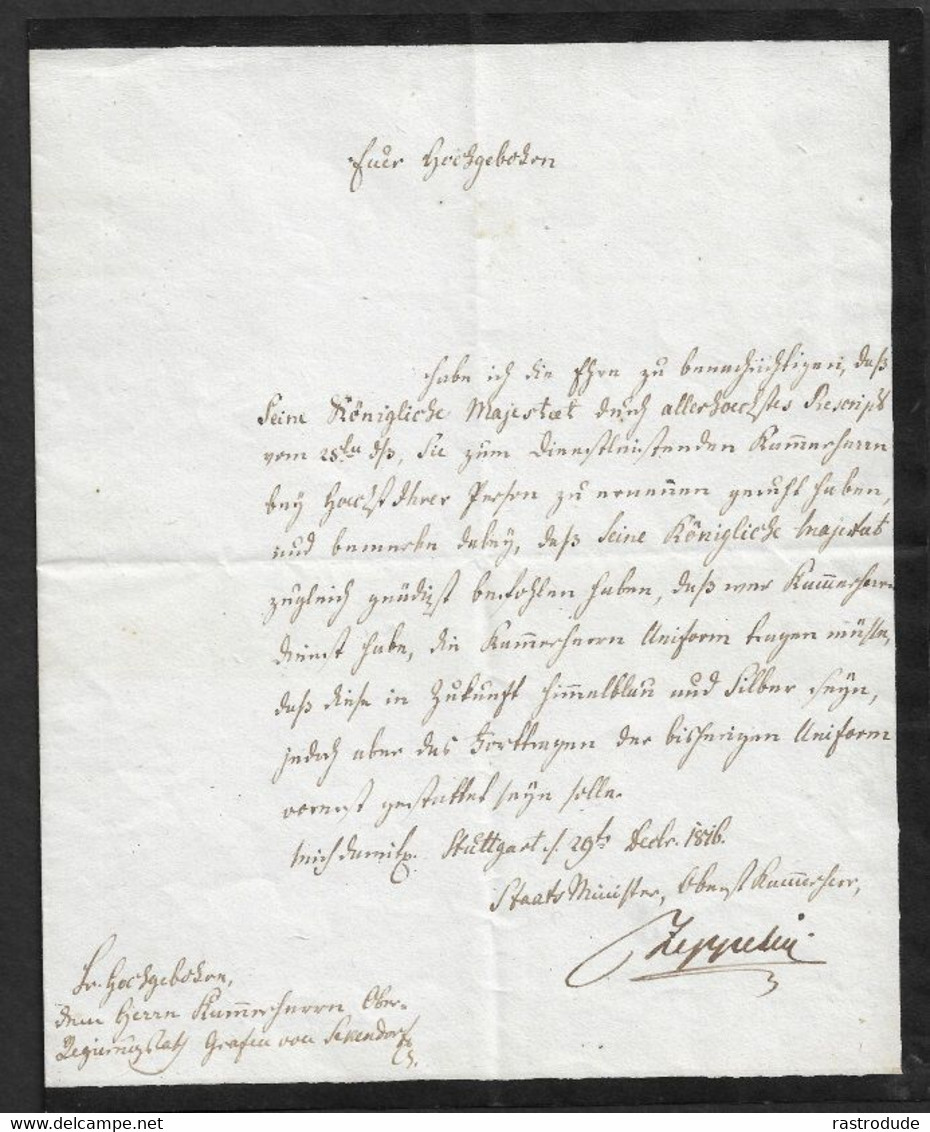 Euer Hochgeboren
habe ich die Ehre zu benachrichtigen, daß
Seine Königliche Majestæt durch allerhoechstes Rescript
vom 28ten dß, Sie zum Dienstleistenden Kammerherrn
bey Hoechst Ihrer Person zu ernennen geruht haben,
und bemerke dabey, daß Seine Königliche Majestæt
zugleich gnädigst befohlen haben, daß wer Kammerherrn
dienst habe, die Kammerherrn Uniform tragen müsse,
daß diese in Zukunft himmelblau und Silber seyn,
jedoch aber das Forttragen der bisherigen Uniform
vorerst gestattet seyn solle.
Mich damit p. Stuttgart d. 29ten Decbr. 1816.
Staats Minister, Oberst Kammerherr,
Zeppelin
Sr. Hochgeboren,
dem Herrn Kammerherrn Ober-
Regierungsrath Grafen von Sekendorf
rastrodude